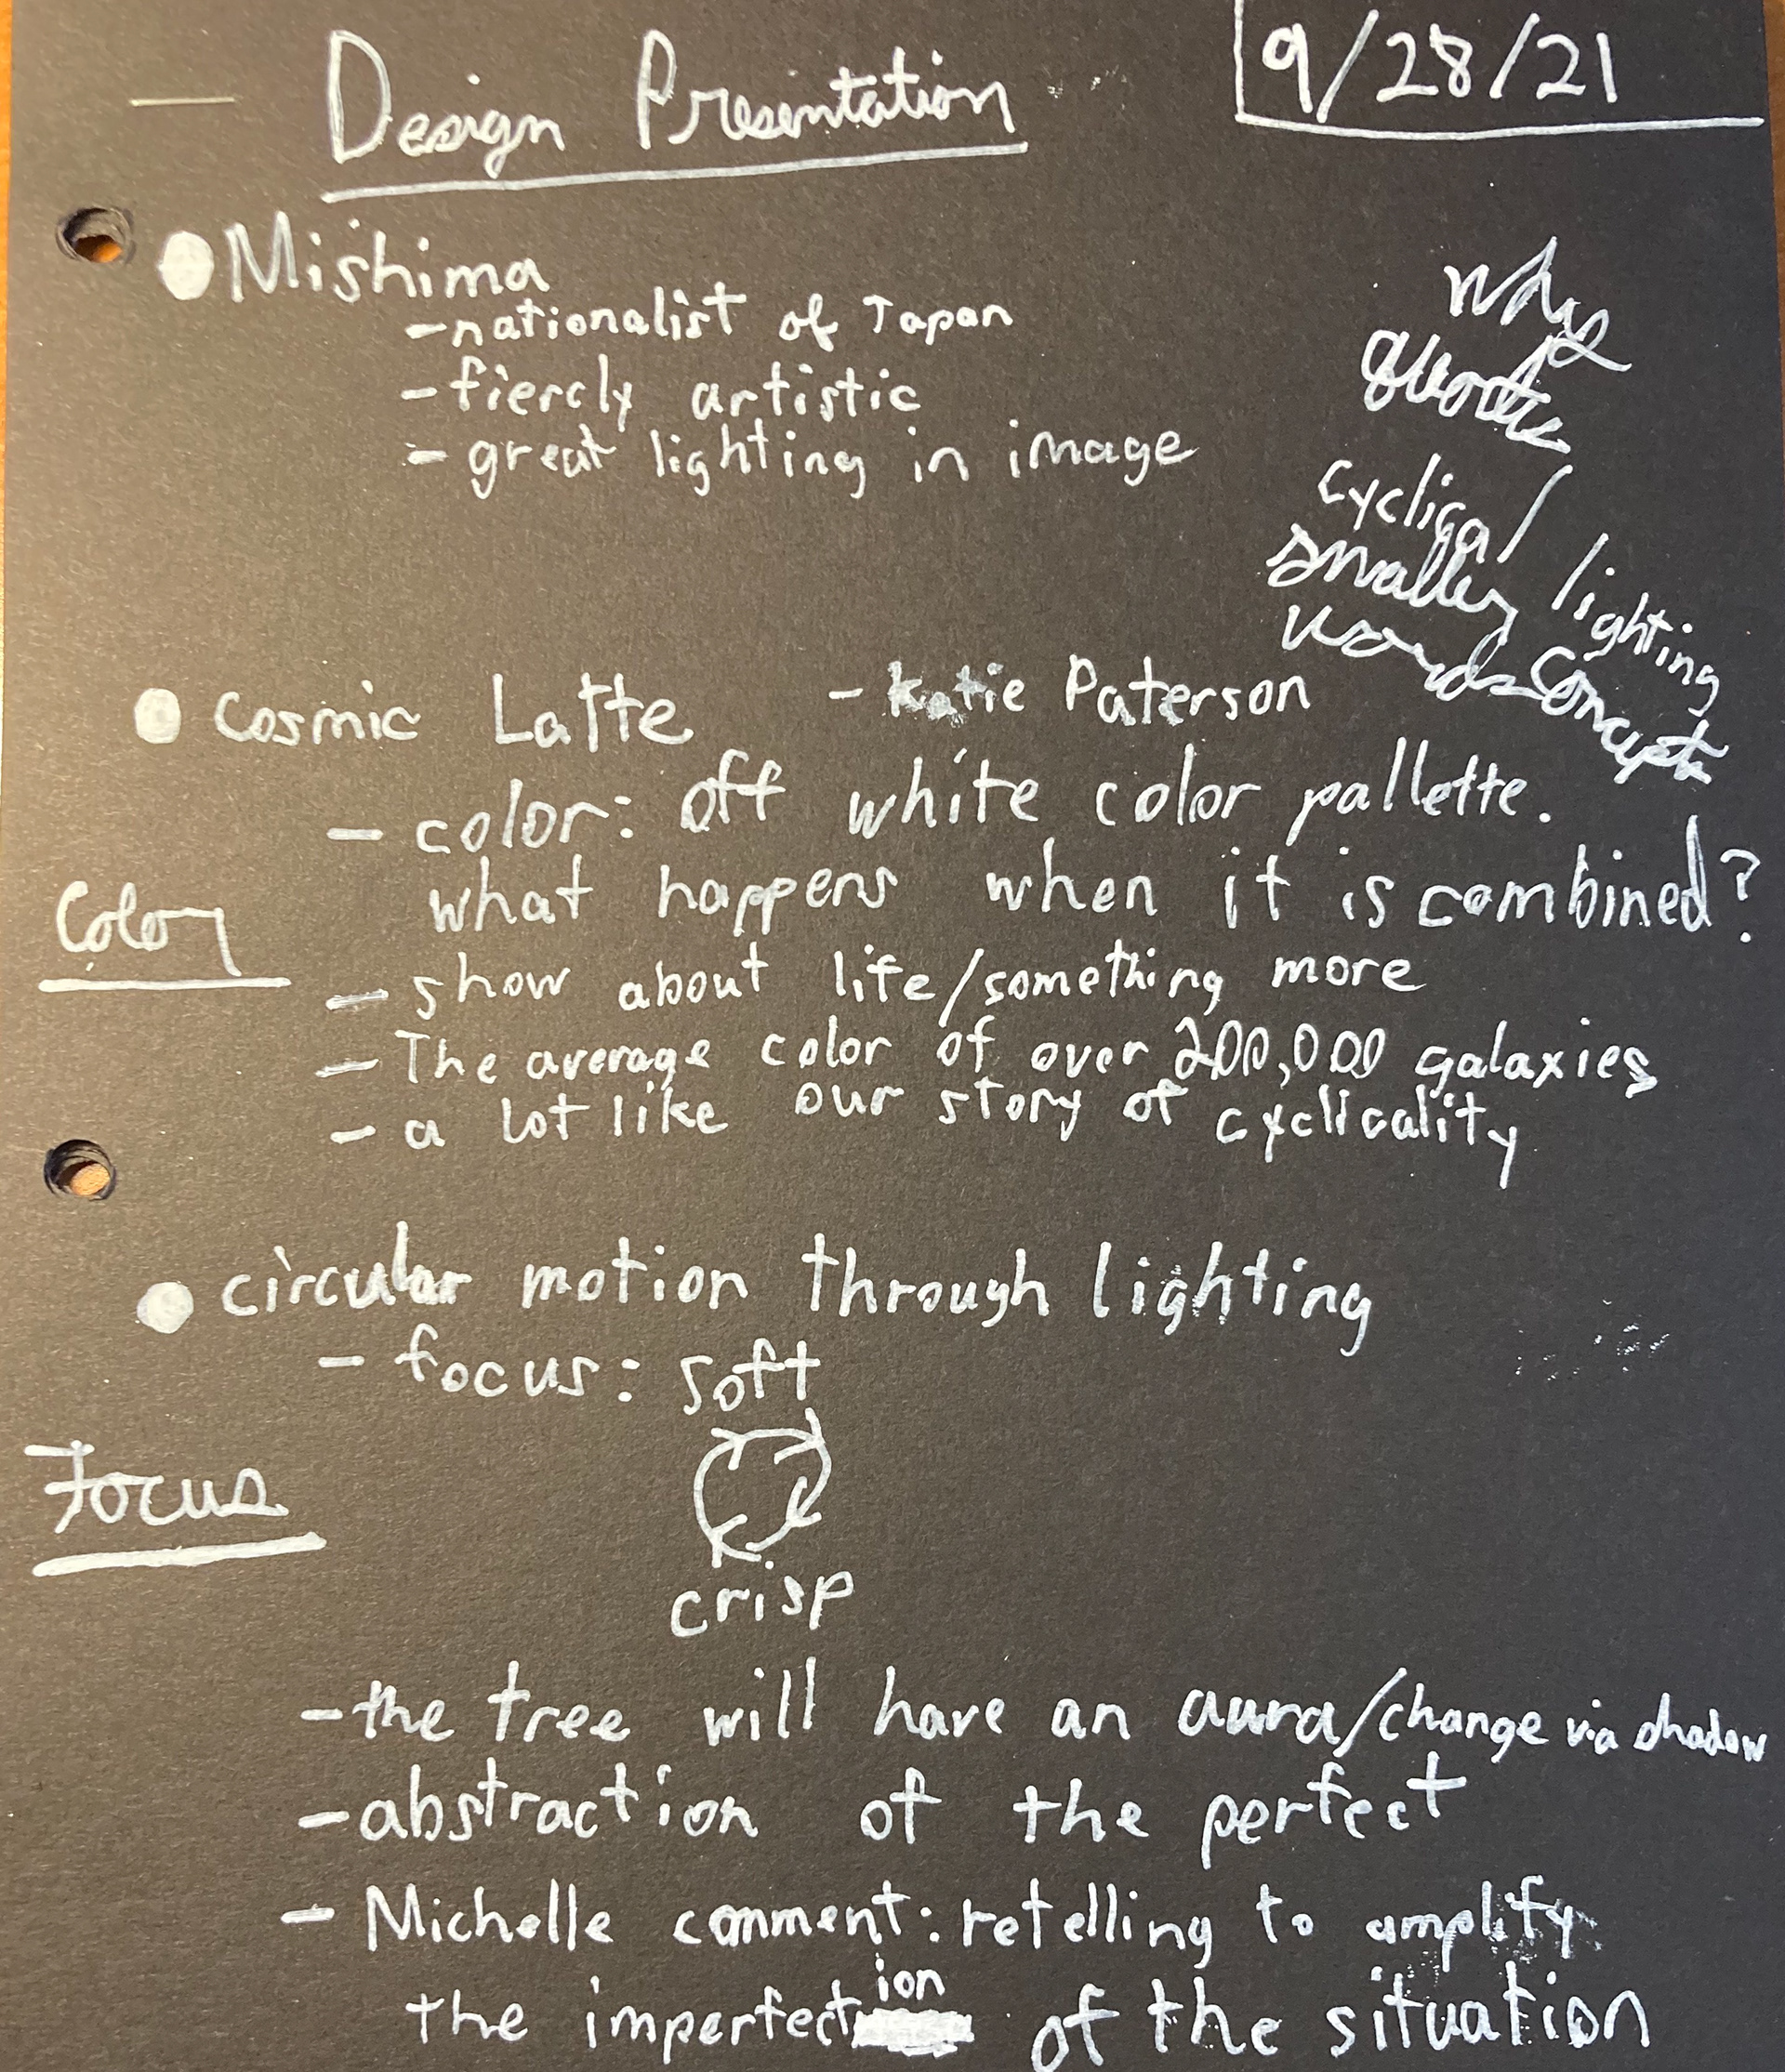 Design Presentation
9/28/21
Mishima
-nationalist of Japan
-fiercly artistic
- great lighting in image
why
quote
cyclical
smaller
words
lighting
concept
cosmic Latte - Katie Paterson
- color: off white color pallette.
what happens when it is combined?
Color
- show about life/something more
- The average color of over 200,000 galaxies
- a lot like our story of cyclicality
circular motion through lighting
- focus: soft
Focus
crisp
-the tree will have an aura/change via shadow
-abstraction of the perfect
- Michelle comment: retelling to amplify
the imperfection of the situation